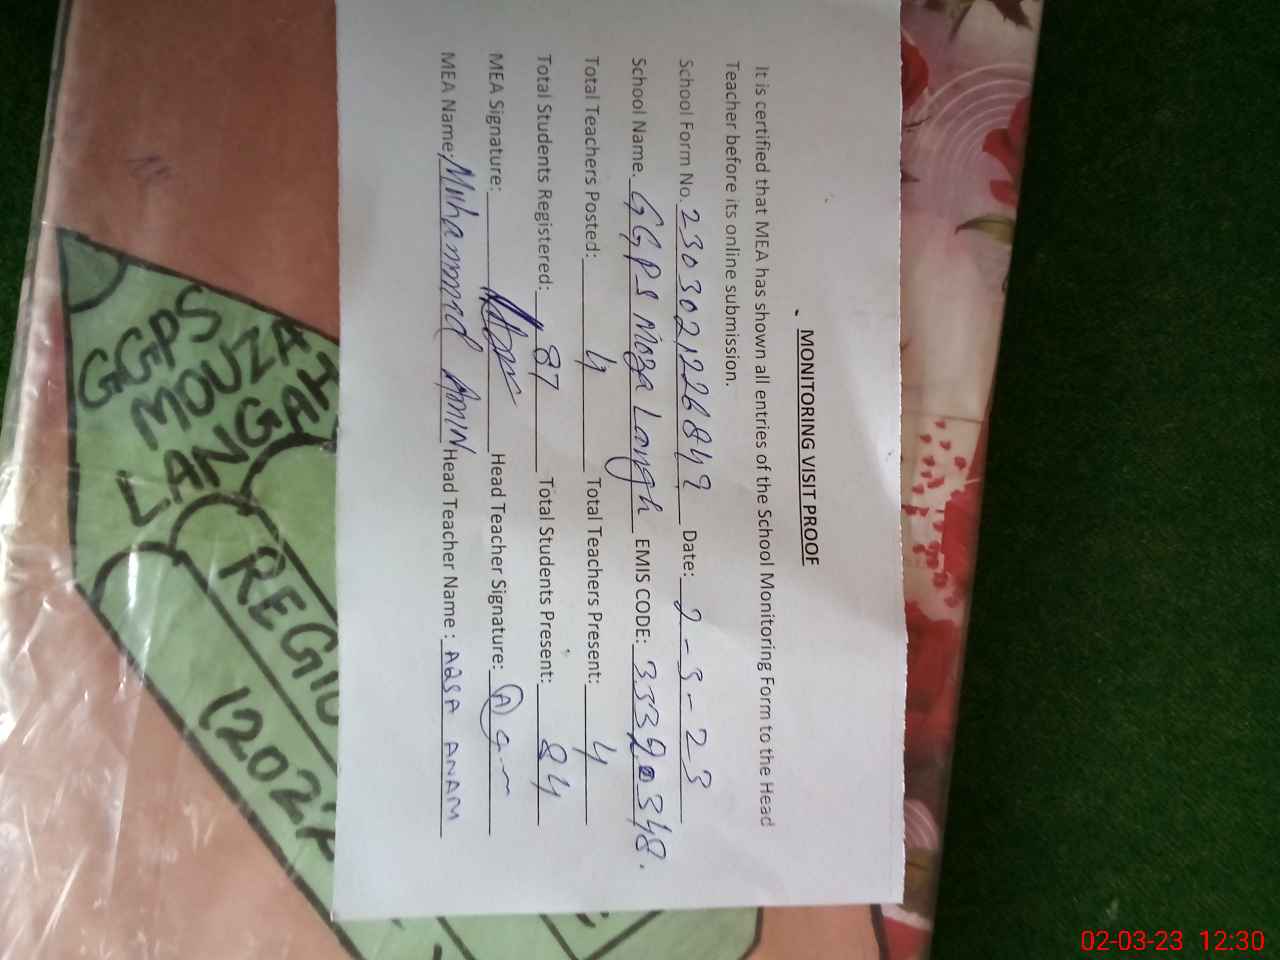 MONITORING VISIT PROOF
It is certified that MEA has shown all entries of the School Monitoring Form to the Head
Teacher before its online submission.
School Form No. 2303021226842 Date: 2-3-23
School Name. GGPS Moza Langh EMIS CODE: 33320348.
Total Teachers Posted: 4 Total Teachers Present: 4
Total Students Registered: 87 Total Students Present: 84
MEA Signature: Head Teacher Signature:
MEA Name: Muhammad AMIN Head Teacher Name : AQSA ANAM
GGPS
MOUZA
LANGAH
REGIO
1202
02-03-23 12:30